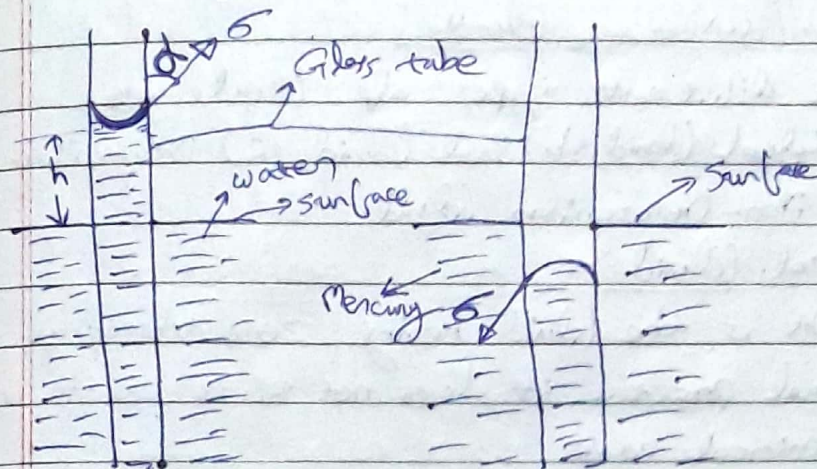 σ
α
Glass tube
h
water
surface
surface
Mercury
σ